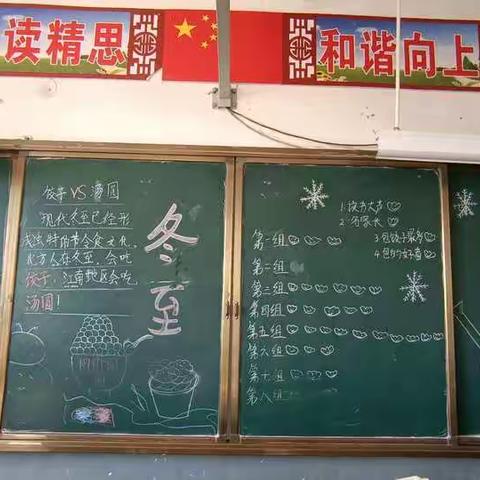 读精思
和谐向上
饺子VS汤圆
现代冬至已经形
成独特的节令食文化,
北方人在冬至,会吃
饺子,江南地区会吃
汤圆!
冬至
1.读书大声
2.写家长
3.包饺子最多
4.包的好看
第一组
第二组
第三组
第四组
第五组
第六组
第七组
第八组